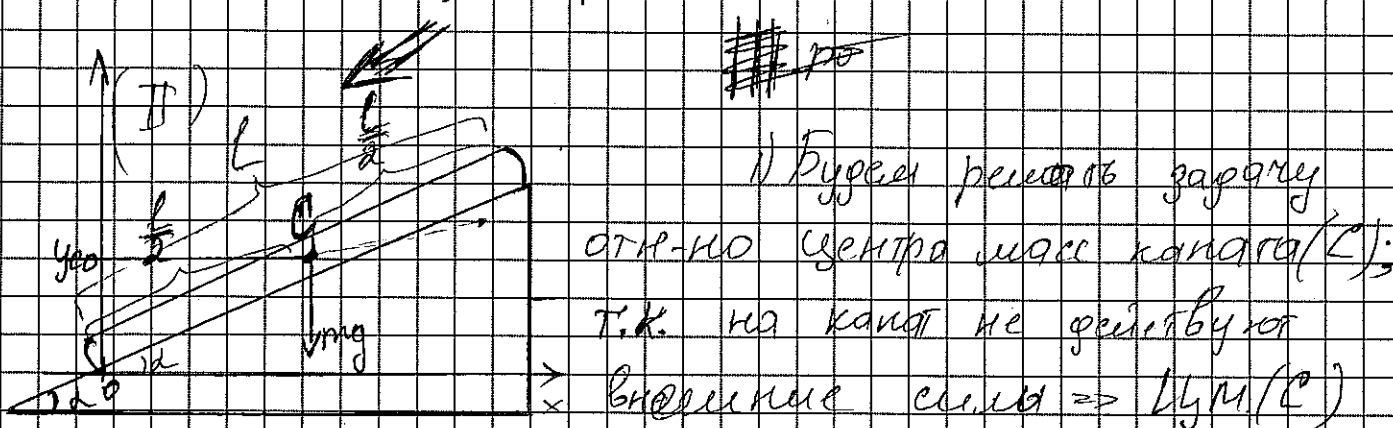 (II)
L
l/2
l/2
C
yco
mg
α
α
0
x
1) Будем решать задачу
отн-но центра масс каната(C);
т.к. на канат не действуют
внешние силы => ЦМ(C)